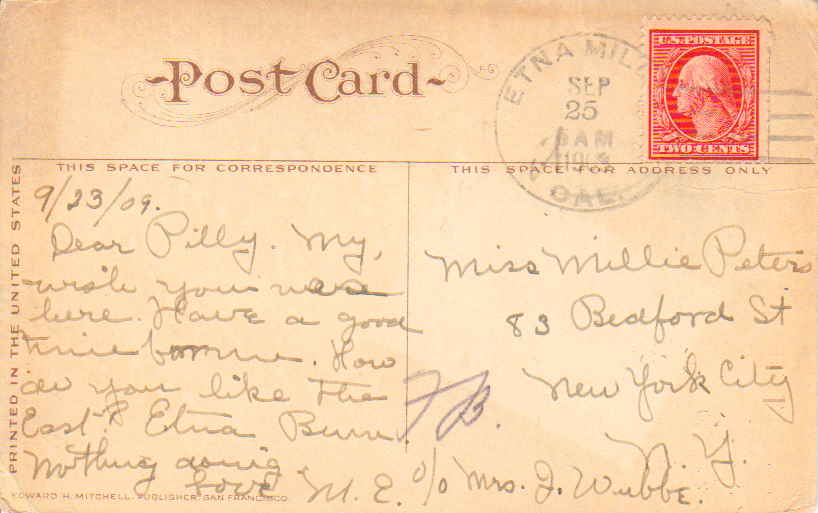 Post Card
ETNA MIL
SEP
25
6 AM
CAL.
U.S. POSTAGE
TWO CENTS
THIS SPACE FOR CORRESPONDENCE
THIS SPACE FOR ADDRESS ONLY
PRINTED IN THE UNITED STATES
9/23/09.
Dear Pilly. My,
wish you were
here. Have a good
time . How
do you like the
East? Etna Bum.
Nothing doing.
Love M. E.
Miss Millie Peters
83 Bedford St
New York City
N. Y.
c/o Mrs. J. Wubbe.
EDWARD H. MITCHELL, PUBLISHER, SAN FRANCISCO